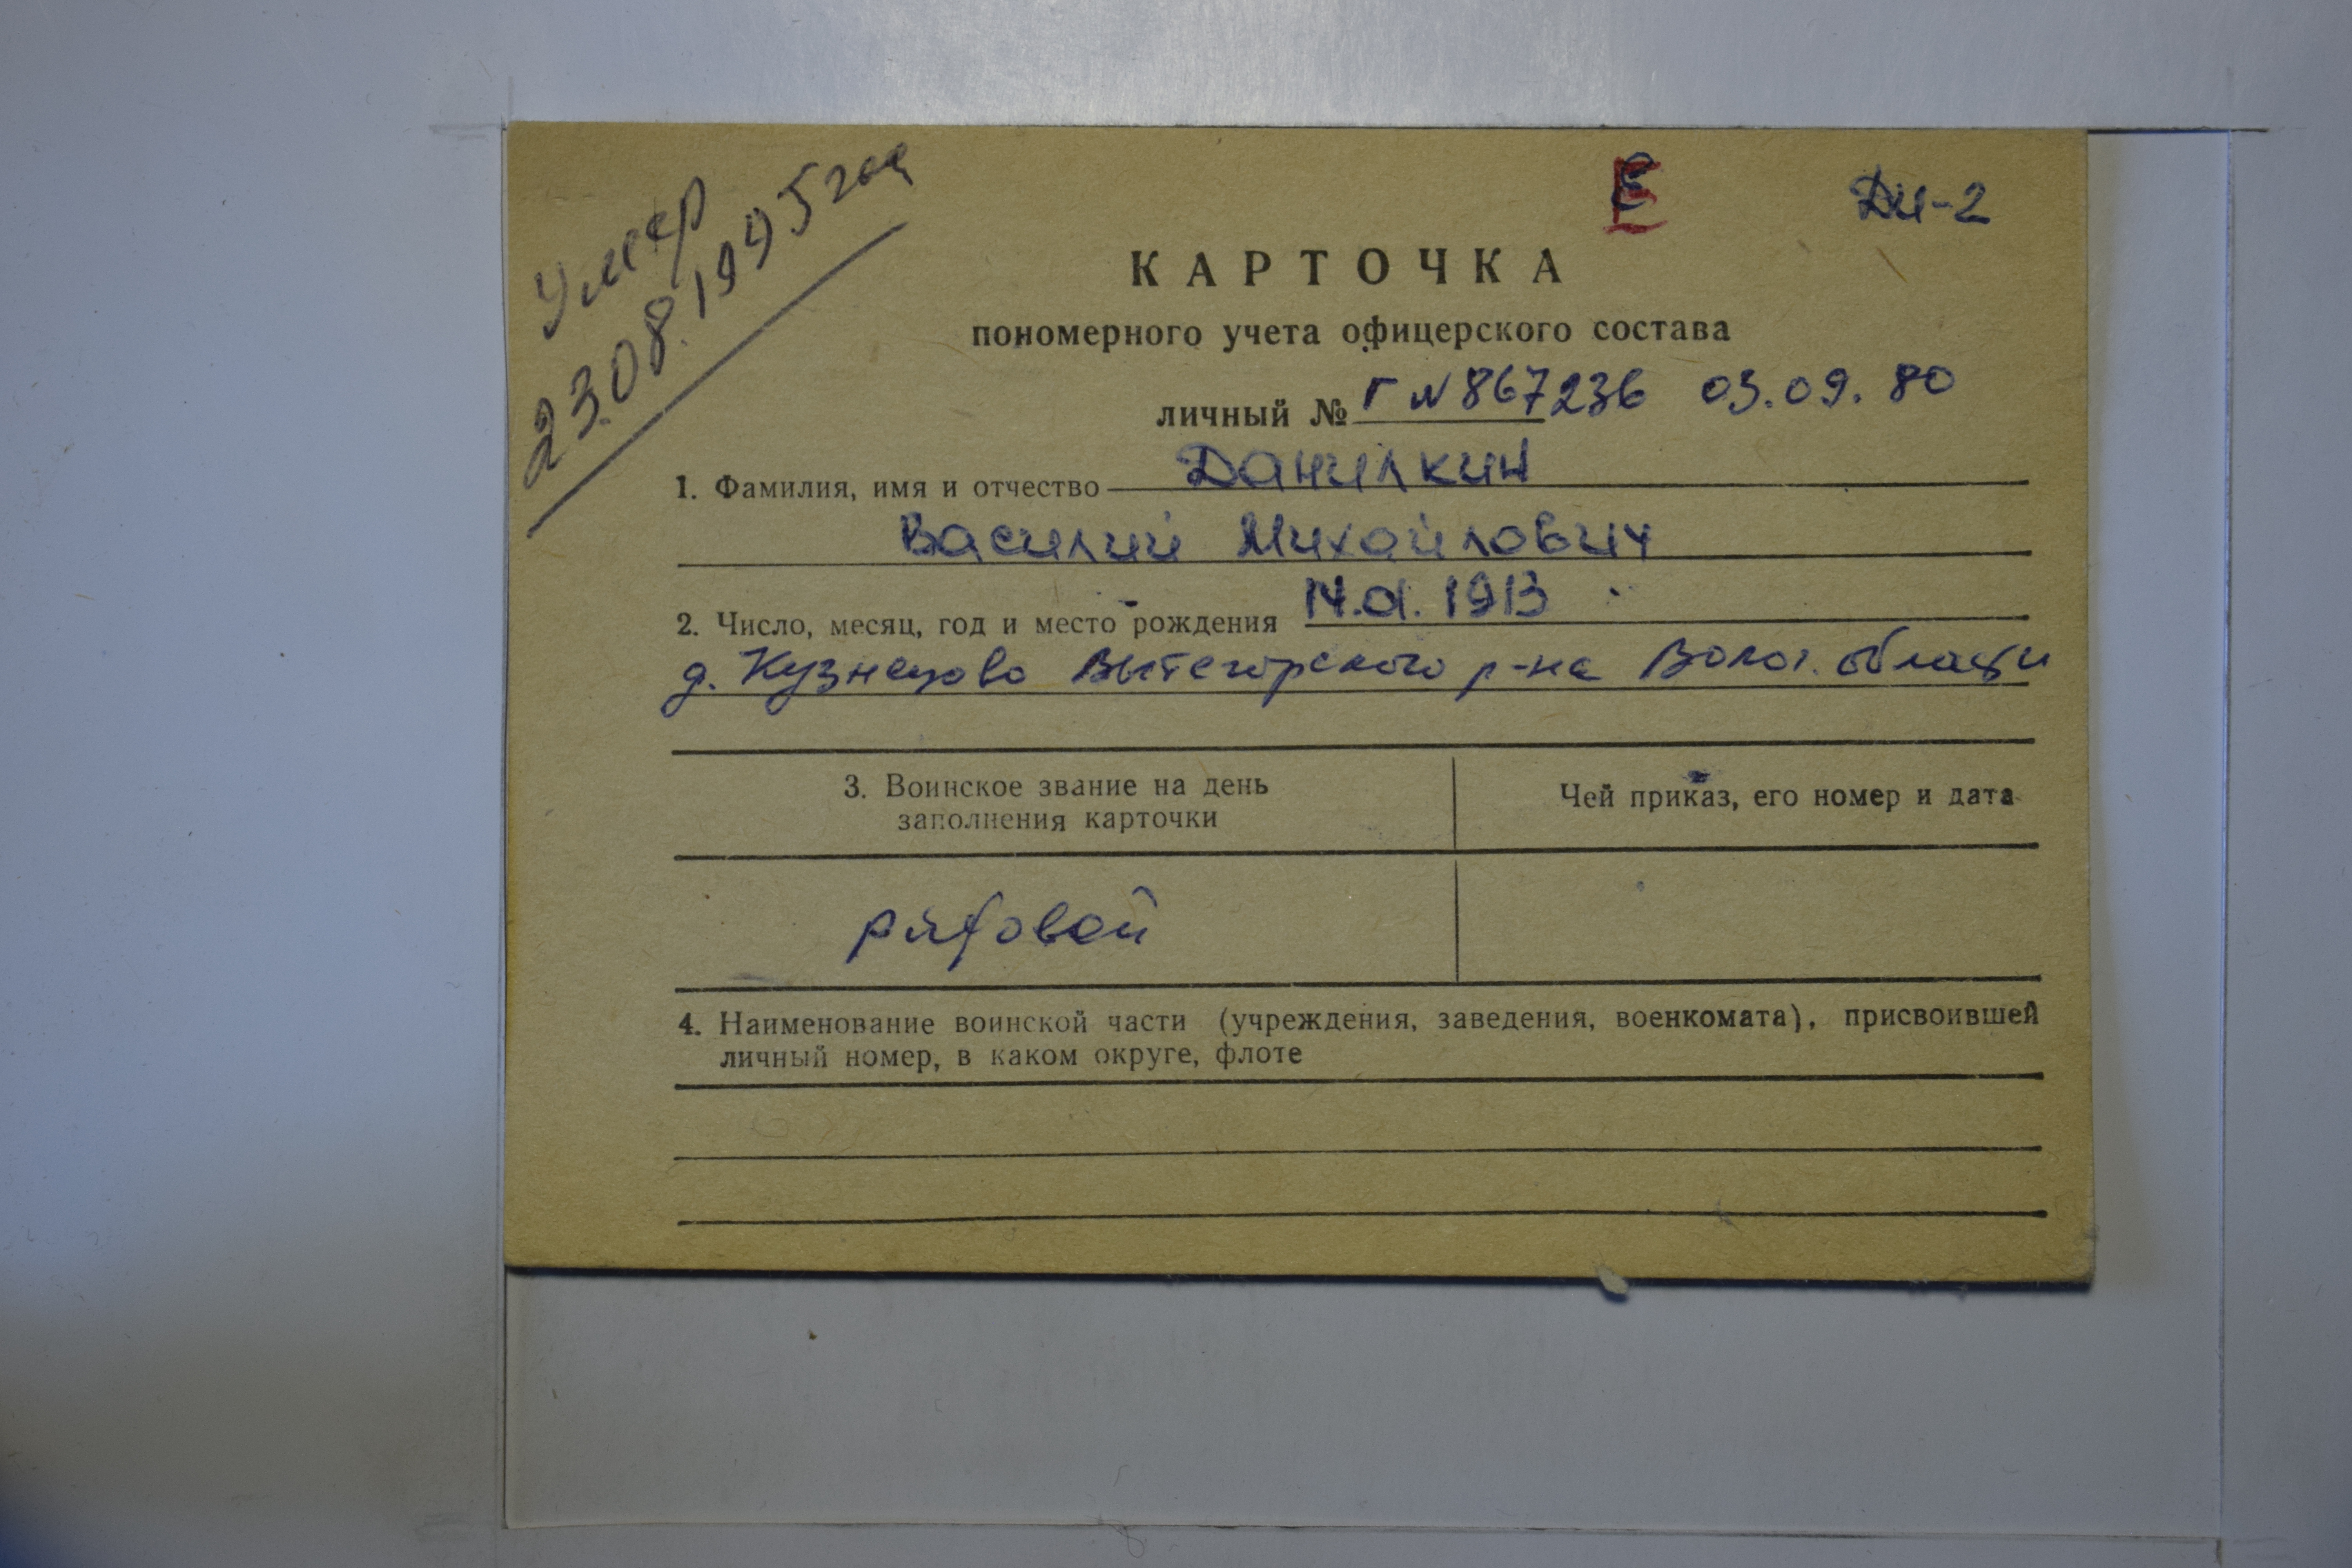 Умер
23.08.1995 год
Е
ДИ-2
КАРТОЧКА
пономерного учета офицерского состава
личный № Г N 867236 03.09.80
1. Фамилия, имя и отчество Данилкин
Василий Михайлович
2. Число, месяц, год и место рождения 14.01.1913
д. Кузнецово Вытегорского р-на Волог. области
3. Воинское звание на день
заполнения карточки
Чей приказ, его номер и дата
рядовой
4. Наименование воинской части (учреждения, заведения, военкомата), присвоившей
личный номер, в каком округе, флоте